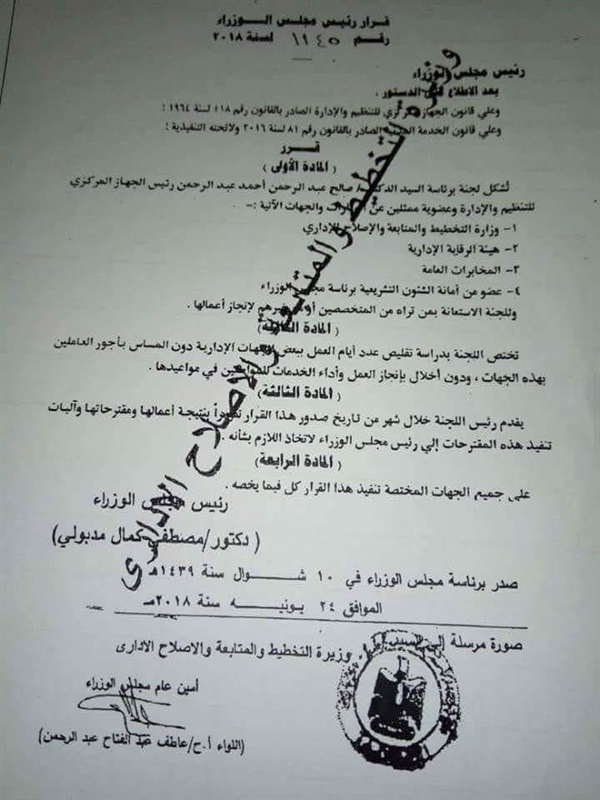 قرار رئيس مجلس الوزراء
رقم ١١٤٥ لسنة ٢٠١٨
رئيس مجلس الوزراء
بعد الاطلاع على الدستور .
وعلي قانون الجهاز المركزي للتنظيم والإدارة الصادر بالقانون رقم ١١٨ لسنة ١٩٦٤ ؛
وعلي قانون الخدمة المدنية الصادر بالقانون رقم ٨١ لسنة ٢٠١٦ ولائحته التنفيذية ؛
قرر
( المادة الأولى )
تُشكل لجنة برئاسة السيد الدكتور/ صالح عبد الرحمن أحمد عبد الرحمن رئيس الجهاز المركزي
للتنظيم والإدارة وعضوية ممثلين عن الوزارات والجهات الآتية :-
١- وزارة التخطيط والمتابعة والإصلاح الإداري
٢- هيئة الرقابة الإدارية
٣- المخابرات العامة
٤- عضو من أمانة الشئون التشريعية برئاسة مجلس الوزراء
وللجنة الاستعانة بمن تراه من المتخصصين أو غيرهم لإنجاز أعمالها .
( المادة الثانية )
تختص اللجنة بدراسة تقليص عدد أيام العمل ببعض الجهات الإدارية دون المساس بأجور العاملين
بهذه الجهات ، ودون أخلال بإنجاز العمل وأداء الخدمات للمواطنين في مواعيدها .
( المادة الثالثة )
يقدم رئيس اللجنة خلال شهر من تاريخ صدور هذا القرار تقريراً بنتيجة أعمالها ومقترحاتها وآليات
تنفيذ هذه المقترحات إلي رئيس مجلس الوزراء لاتخاذ اللازم بشأنه .
( المادة الرابعة )
على جميع الجهات المختصة تنفيذ هذا القرار كل فيما يخصه .
رئيس مجلس الوزراء
( دكتور/مصطفي كمال مدبولي )
صدر برئاسة مجلس الوزراء في ١٠ شوال سنة ١٤٣٩هـ
الموافق ٢٤ يونيه سنة ٢٠١٨مـ
صورة مرسلة إلى السيد وزيرة التخطيط والمتابعة والاصلاح الادارى
أمين عام مجلس الوزراء
(اللواء أ.ح/عاطف عبد الفتاح عبد الرحمن)
وزارة التخطيط والمتابعة والاصلاح الإدارى